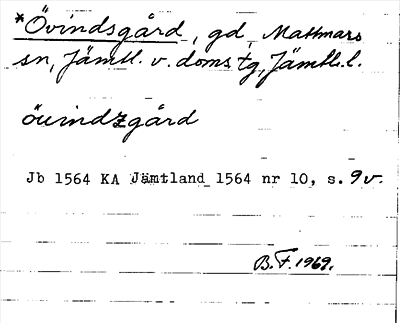 *Övindsgård, gd, Mattmars
sn, Jämtl. v. doms tg, Jämtl.l.
öuindzgård
Jb 1564 KA Jämtland 1564 nr 10, s. 9v.
B.F. 1969.